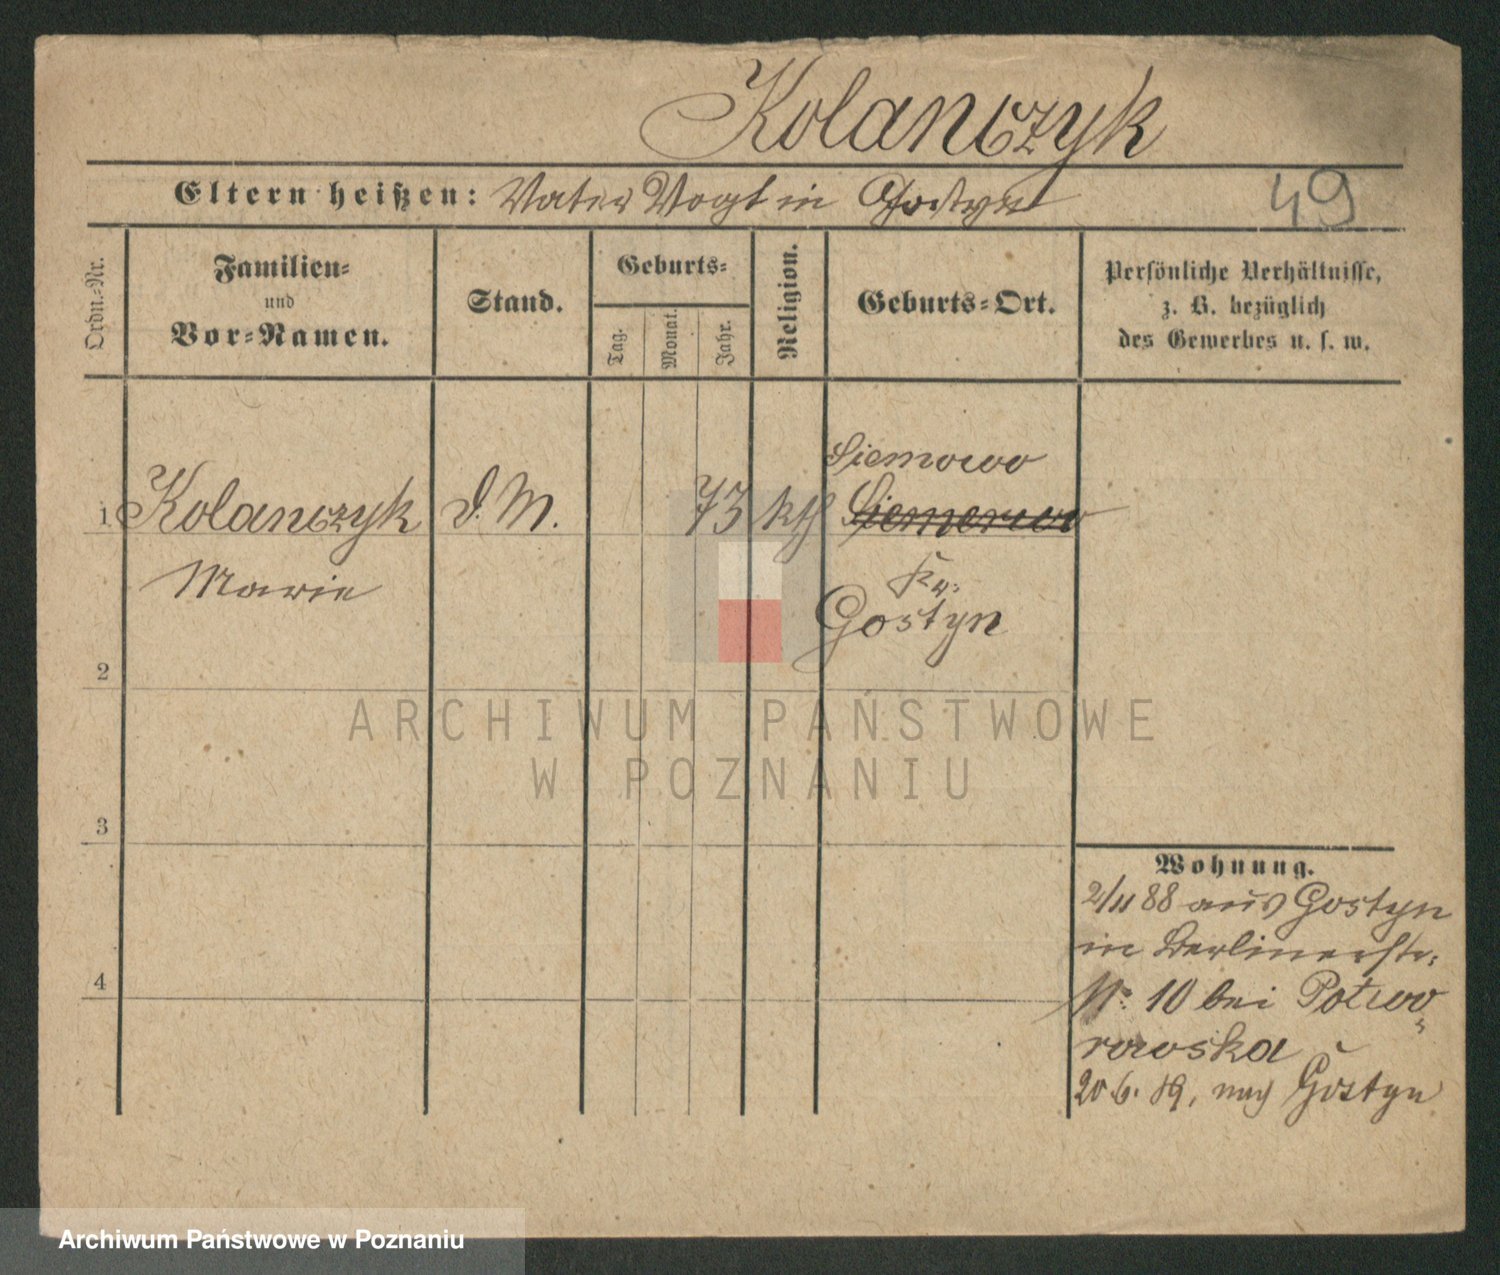 Kolanczyk
Eltern heißen: Vater Vogt in Gostyn
49
Ordn.-Nr.
Familien-
und
Vor-Namen.
Stand.
Geburts-
Tag.
Monat.
Jahr.
Religion.
Geburts-Ort.
Persönliche Verhältnisse,
z. B. bezüglich
des Gewerbes u. s. w.
Siemowo
1 Kolanczyk D. M. 73 kth Siemerowo
Marie
Kr.
Gostyn
2
3
4
Wohnung.
2/11 88 aus Gostyn
in Berlinerstr.
Nr. 10 bei Potwo-
rowska
20 6. 89, nach Gostyn
ARCHIWUM PAŃSTWOWE
W POZNANIU
Archiwum Państwowe w Poznaniu